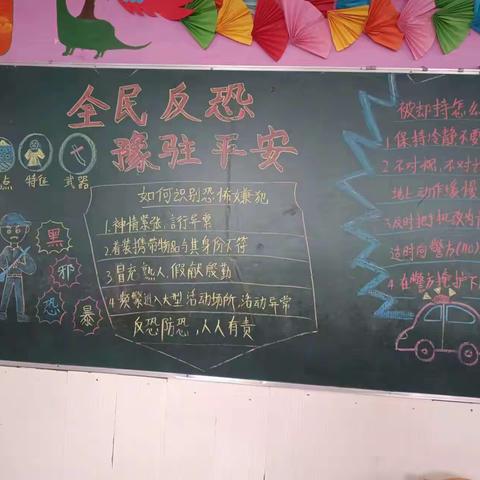 全民反恐
豫驻平安
点 特征 武器
黑
邪
恐
暴
如何识别恐怖嫌犯
1.神情紧张,言行异常
2.着装携带物品与其身份不符
3.冒充熟人,假献殷勤
4.频繁进入大型活动场所,活动异常
反恐防恐,人人有责
被劫持怎么
1.保持冷静不要
2.不对视,不对
动作缓慢
3.及时把手机改为
适时向警方(110)
4.在警方掩护下